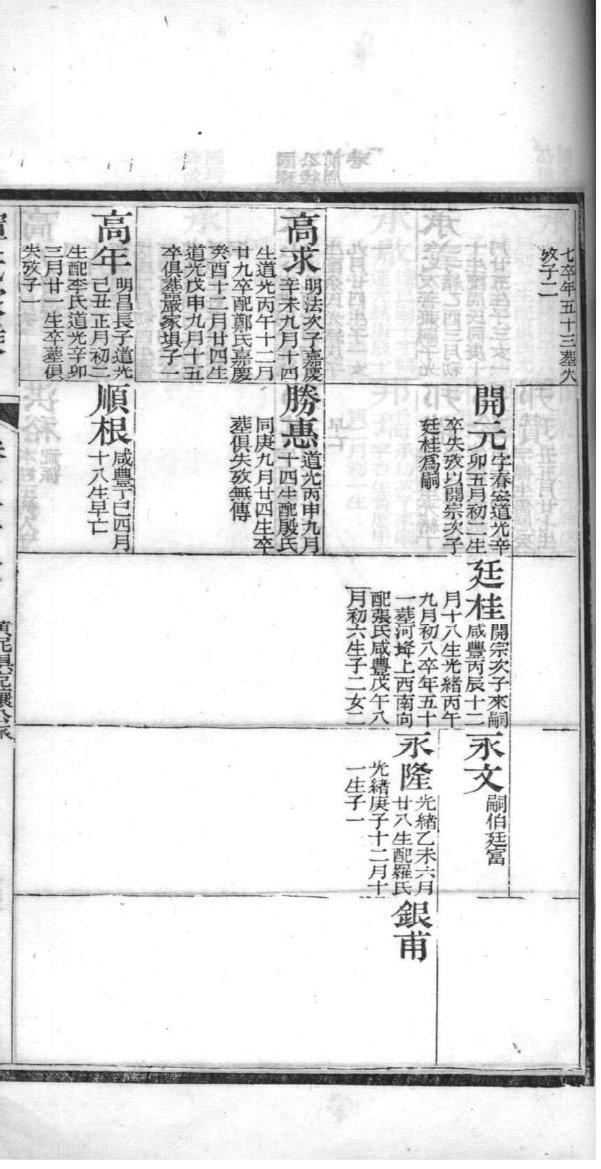 七卒年五十三葬失
攷子二
開元
字春宏道光辛
卯五月初二生
卒失攷以開宗次子
廷桂爲嗣
廷桂
開宗次子來嗣
咸豐丙辰十二
月十八生光緒丙午
九月初八卒年五十
一葬河垾上西南向
配張氏咸豐戊午八
月初六生子二女二
永文
嗣伯廷富
永隆
光緒乙未六月
廿八生配羅氏
光緒庚子十二月十
一生子一
銀甫
高求
明法次子嘉慶
辛未九月十四
生道光丙午十二月
廿九卒配鄭氏嘉慶
癸酉十二月廿四生
道光戊申九月十五
卒俱葬嚴家填子一
勝惠
道光丙申九月
十四生配殷氏
同庚九月廿四生卒
葬俱失攷無傳
高年
明昌長子道光
己丑正月初二
生配李氏道光辛卯
三月廿一生卒葬俱
失攷子一
順根
咸豐丁巳四月
十八生早亡